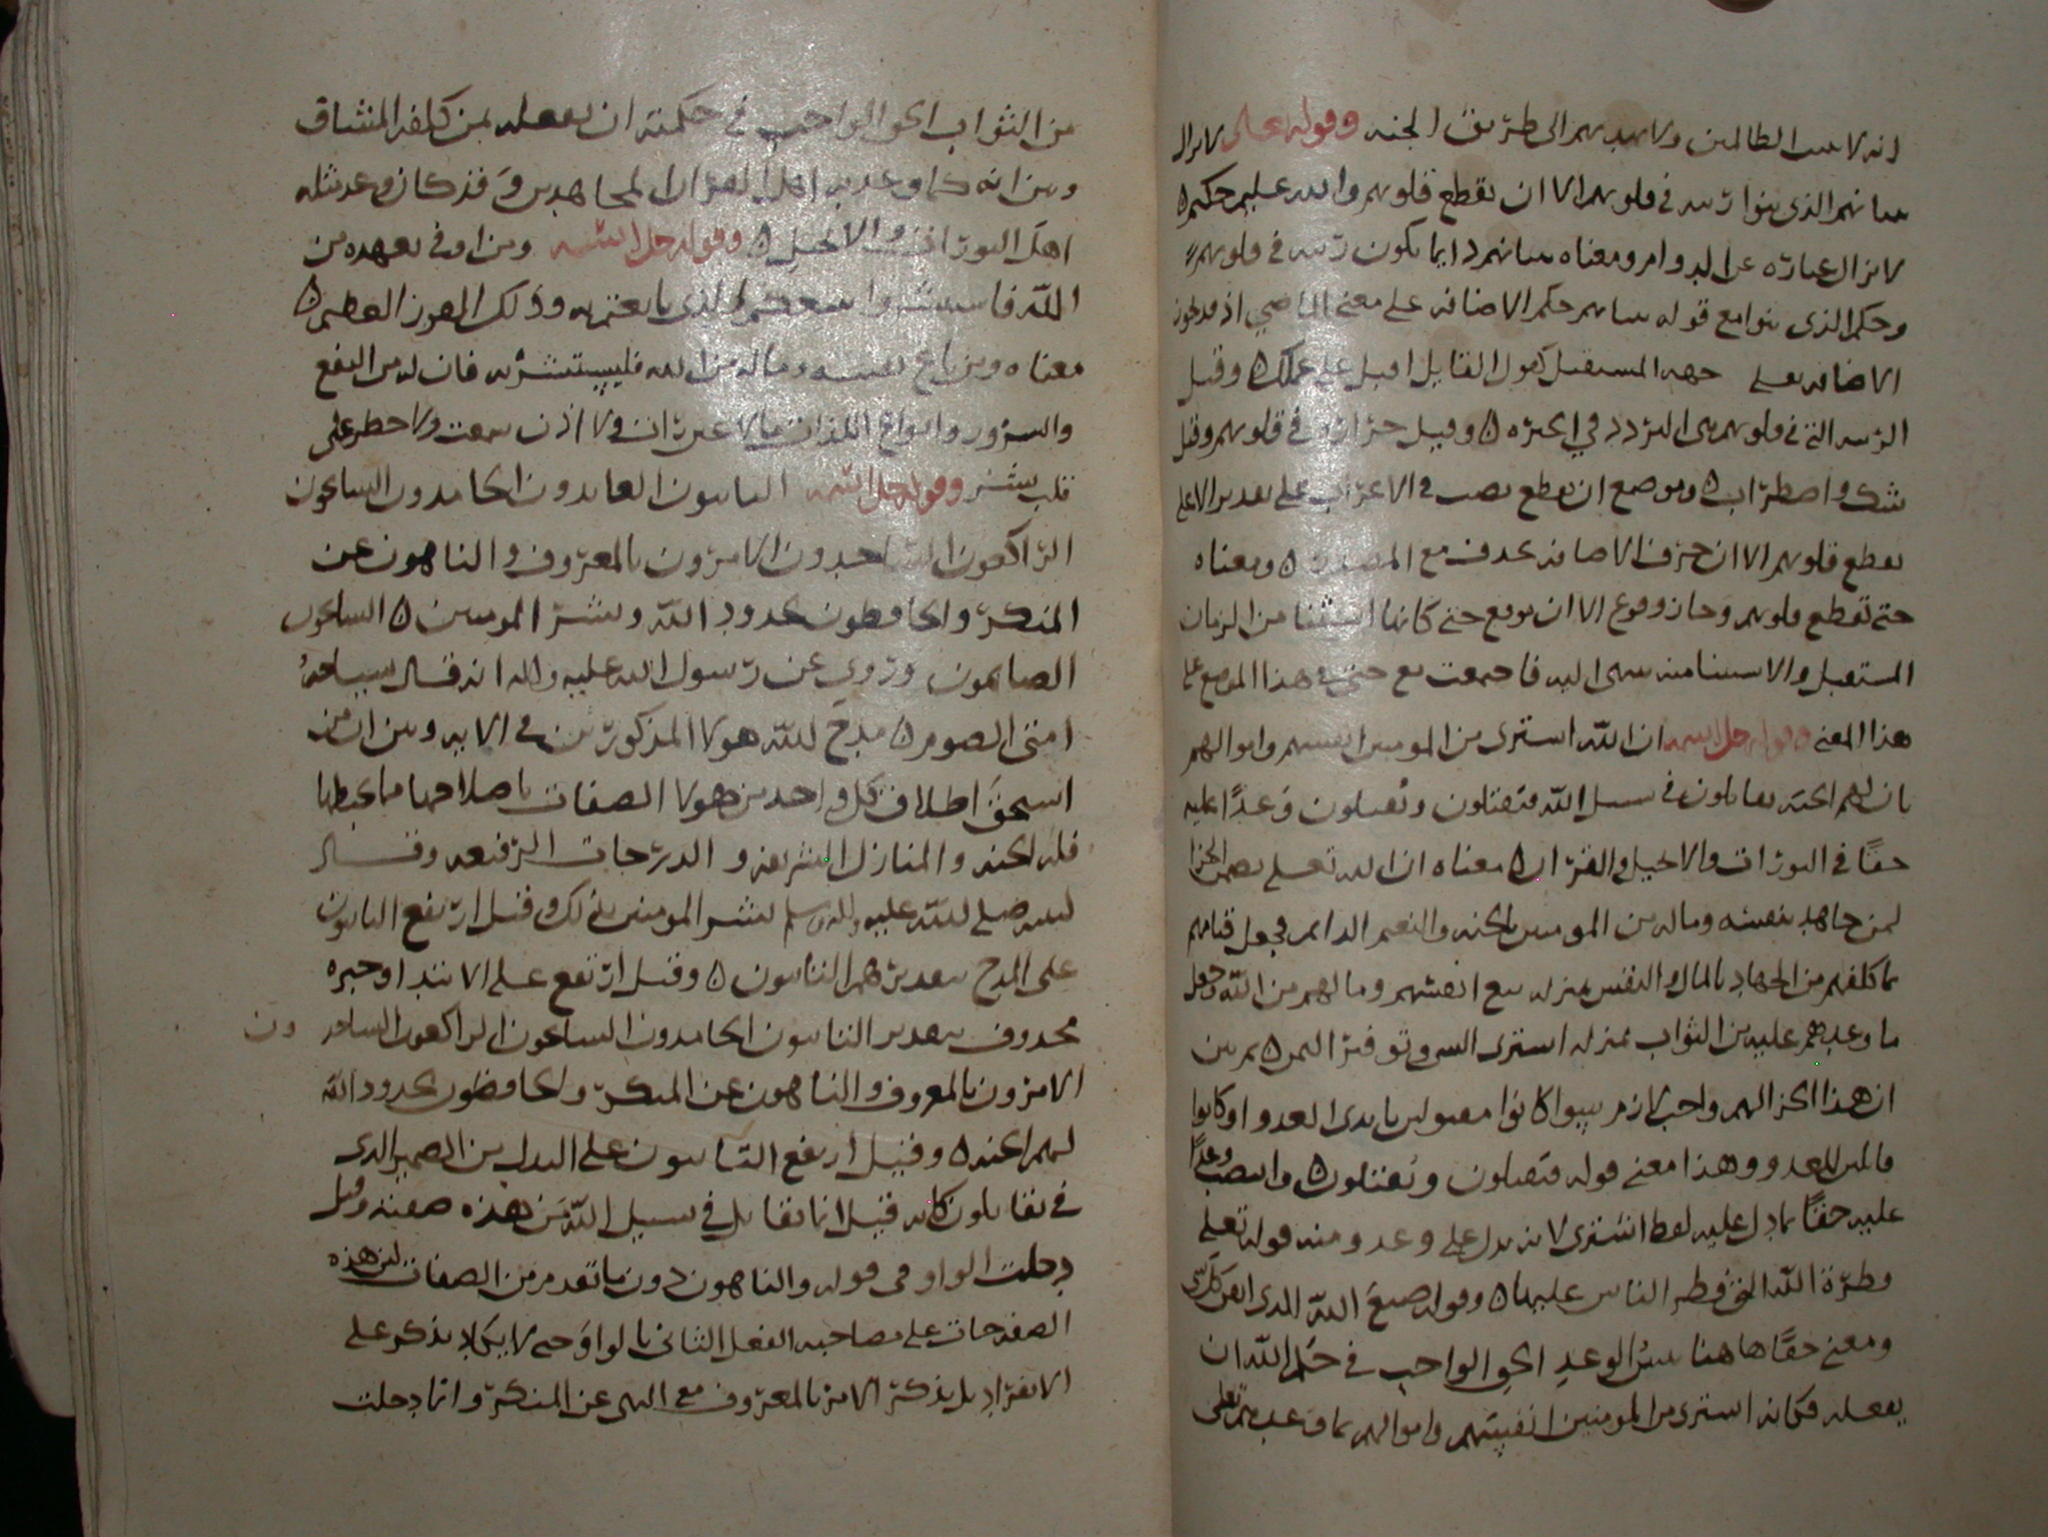 انه لا يثيب الظالمين ولا يهديهم الى طريق الجنه وقوله تعلى لا يزال
بنيانهم الذى بنوا ريبه في قلوبهم الا ان تقطع قلوبهم والله عليم حكيم ه
لا يزال عبارة عن الدوام ومعناه بنيانهم دايما يكون ريبه في قلوبهم
وحكم الذى بنوا مع قوله بنيانهم حكم الاضافه على معنى الماضي اذ قد تكون
الاضافه على جهه المستقبل كقول القايل اقبل على عملك ه وقيل
الريبه التي في قلوبهم هى التردد في الحيره ه وقيل حزازه في قلوبهم وقيل
شك واضطراب ه وموضع ان تقطع نصب في الاعراب على تقدير الا على
تقطع قلوبهم الا ان حرف الاضافه يحذف مع المصدر ه ومعناه
حتى تقطع قلوبهم وجاز وقوع الا ان موقع حتى كانها استثنا من الزمان
المستقبل والاستثنا منه ينتهى اليه فاجتمعت مع حتى في هذا الموضع على
هذا المعنى وقوله جل اسمه ان الله اشترى من المومنين انفسهم واموالهم
بان لهم الجنه يقاتلون في سبيل الله فيقتلون ويقتلون وعدًا عليه
حقًا في التوراة والانجيل والقران ه معناه ان الله تعلى يضمن الجزا
لمن جاهد بنفسه وماله من المومنين بالجنه والنعيم الدايم فجعل قيامهم
بما كلفهم من الجهاد بالمال والنفس بمنزله بيع انفسهم ومالهم من الله وجعل
ما وعدهم عليه من الثواب بمنزله اشترى السى وتوفير الثمن ه ثم بين
ان هذا الجزا لهم واجب لازم سوا كانوا مقتولين بايدى العدو او كانوا
قاتلين للعدو وهذا معنى قوله فيقتلون ويُقتلون ه وانتصب وعدًا
عليه حقًا بما دل عليه لفظ اشترى لانه يدل على وعد ومنه قوله تعلى
فطرة الله التي فطر الناس عليها ه وقوله صنع الله الذى اتقن كل شى
ومعنى حقًا هاهنا يبين الوعد الحق الواجب في حكم الله ان
يفعله فكانه اشترى من المومنين انفسهم واموالهم بما وعدهم تعلى
من الثواب الحق الواجب في حكمته ان يفعله بمن كلفه المشاق
وبين انه كما وعد به اهل القران المجاهدين وقد كان وعد مثله
اهل التوراة والانجيل ه وقوله جل اسمه ومن اوفى بعهده من
الله فاستبشروا ببيعكم الذى بايعتم به وذلك الفوز العظيم ه
معناه ومن باع نفسه وماله من الله فليستبشر به فان له من النفع
والسرور وانواع اللذات ما لا عين رات ولا اذن سمعت ولا خطر على
قلب بشر وقوله جل اسمه التايبون العابدون الحامدون السايحون
الراكعون الساجدون الامرون بالمعروف والناهون عن
المنكر والحافظون لحدود الله وبشر المومنين ه السايحون
الصايمون وروي عن رسول الله عليه واله انه قال سياحه
امتى الصوم ه مدح الله هولا المذكورين في الايه وبين ان من
استحق اطلاق كل واحد من هولا الصفات باصلاحها مما يحبطها
فله الجنه والمنازل الشريفه و الدرجات الرفيعه وقال
لنبيه صلى الله عليه واله وسلم بشر المومنين بذلك وقيل ارتفع التايبون
على المدح بتقدير هم التايبون ه وقيل ارتفع على الابتدا وخبره
محذوف بتقدير التايبون الحامدون السايحون الراكعون الساجد ون
الامرون بالمعروف والناهون عن المنكر والحافظون لحدود الله
لهم الجنه ه وقيل ارتفع التايبون على البدل من الضمير الذى
في يقاتلون كانه قيل انما يقاتل في سبيل الله من هذه صفته وقيل
دخلت الواو في قوله والناهون دون ما تقدم من الصفات لان هذه
الصفه جات على مصاحبه الفعل الثاني بالواو حتى لا يكاد يذكر على
الانفراد بل يذكر الامر بالمعروف مع النهى عن المنكر وانما دخلت